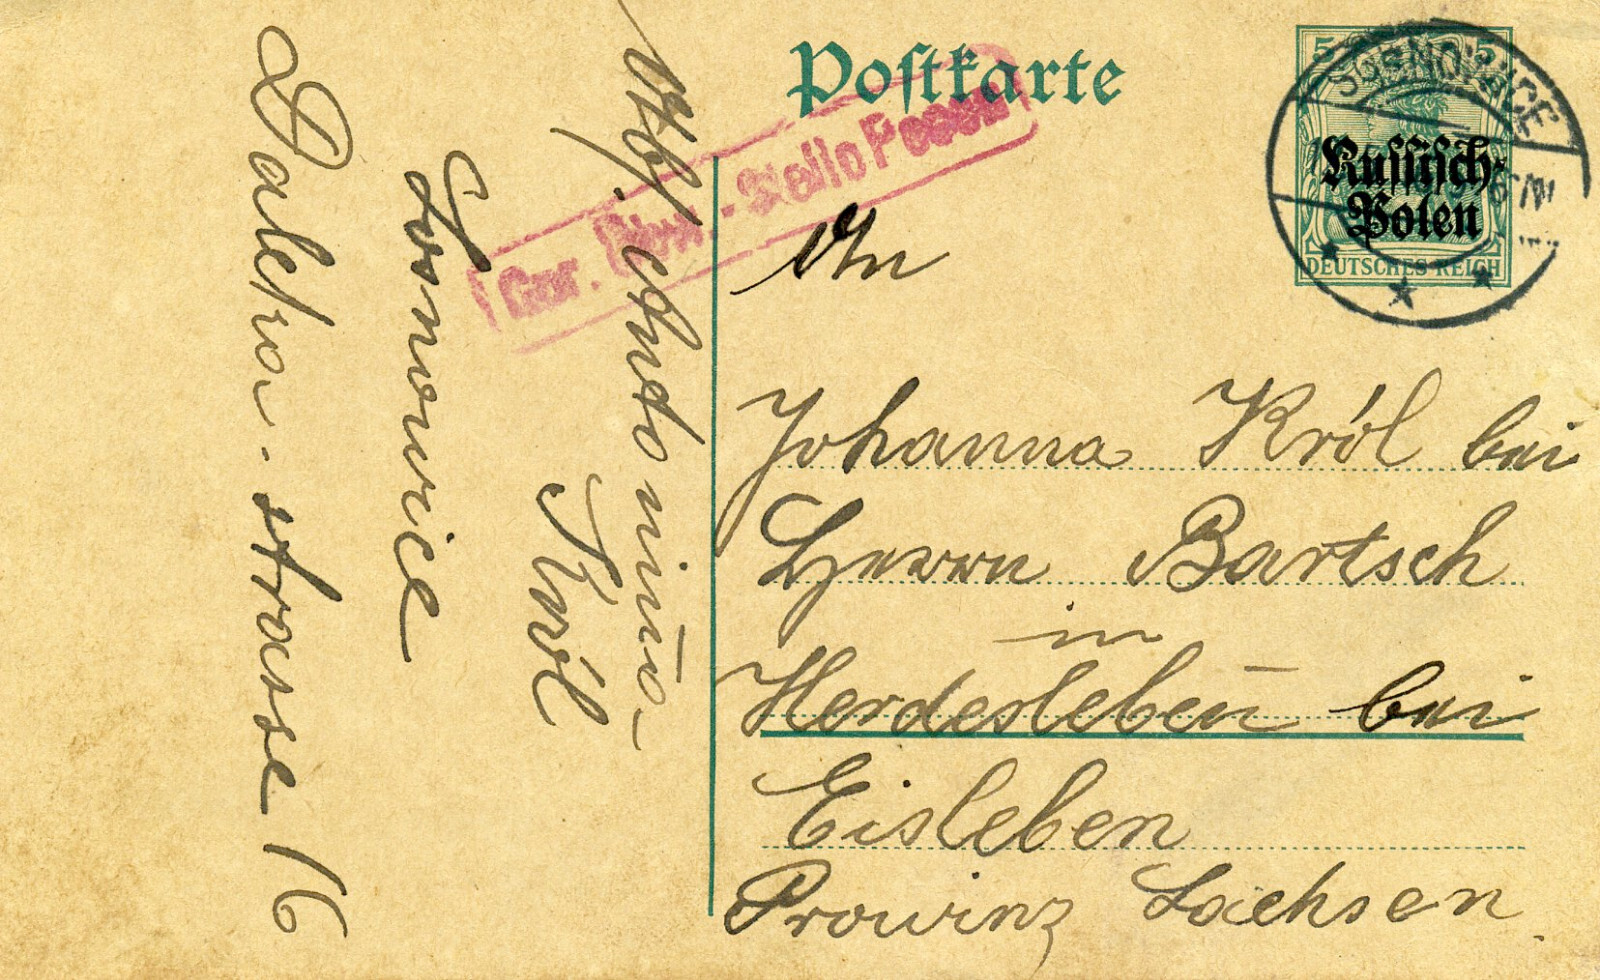 Postkarte
5 5
SOSNOWICE
Russisch-
Polen
DEUTSCHES REICH
Posen
An
Johanna Król bei
Herrn Bartsch
in
Herdesleben bei
Eisleben
Prowinz Sachsen
Abs.
Król
Sosnowice
strasse 16